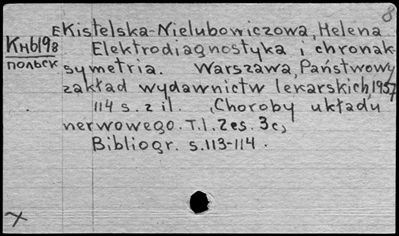 8
EKistelska-Nielubowiczowa, Helena
Кн6198
польск
Elektrodiagnostyka i chronak-
symetria. Warszawa, Państwowy
zakład wydawnictw lekarskich, 1957
114 s. z il. „Choroby układu
nerwowego. T.1. Zes. 3c„
Bibliogr. s. 113-114.